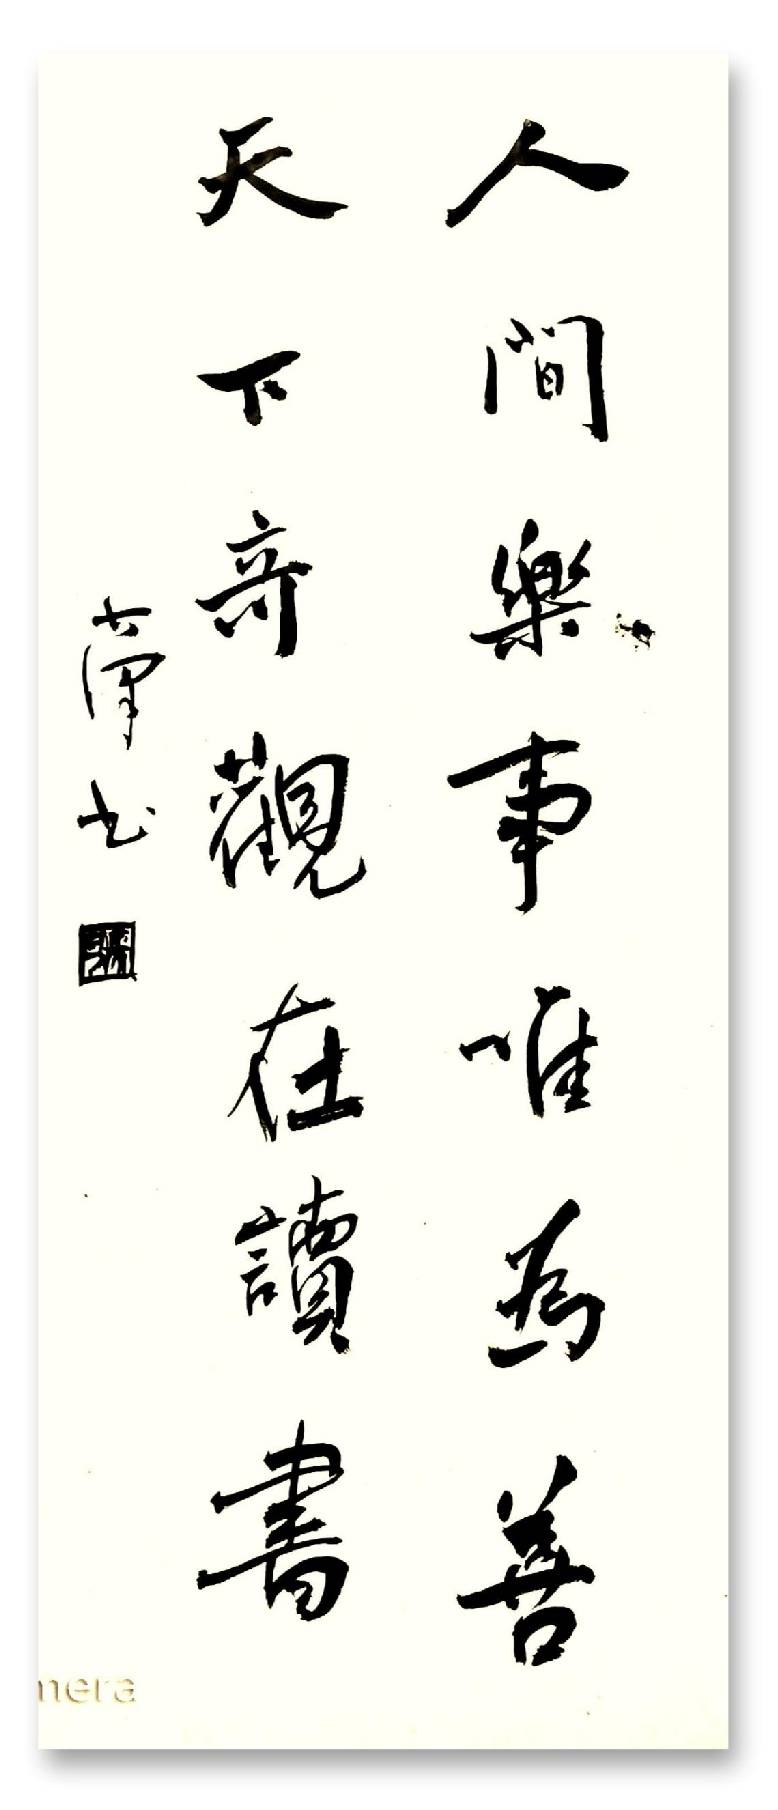 人間樂事唯為善
天下奇觀在讀書
書
mera